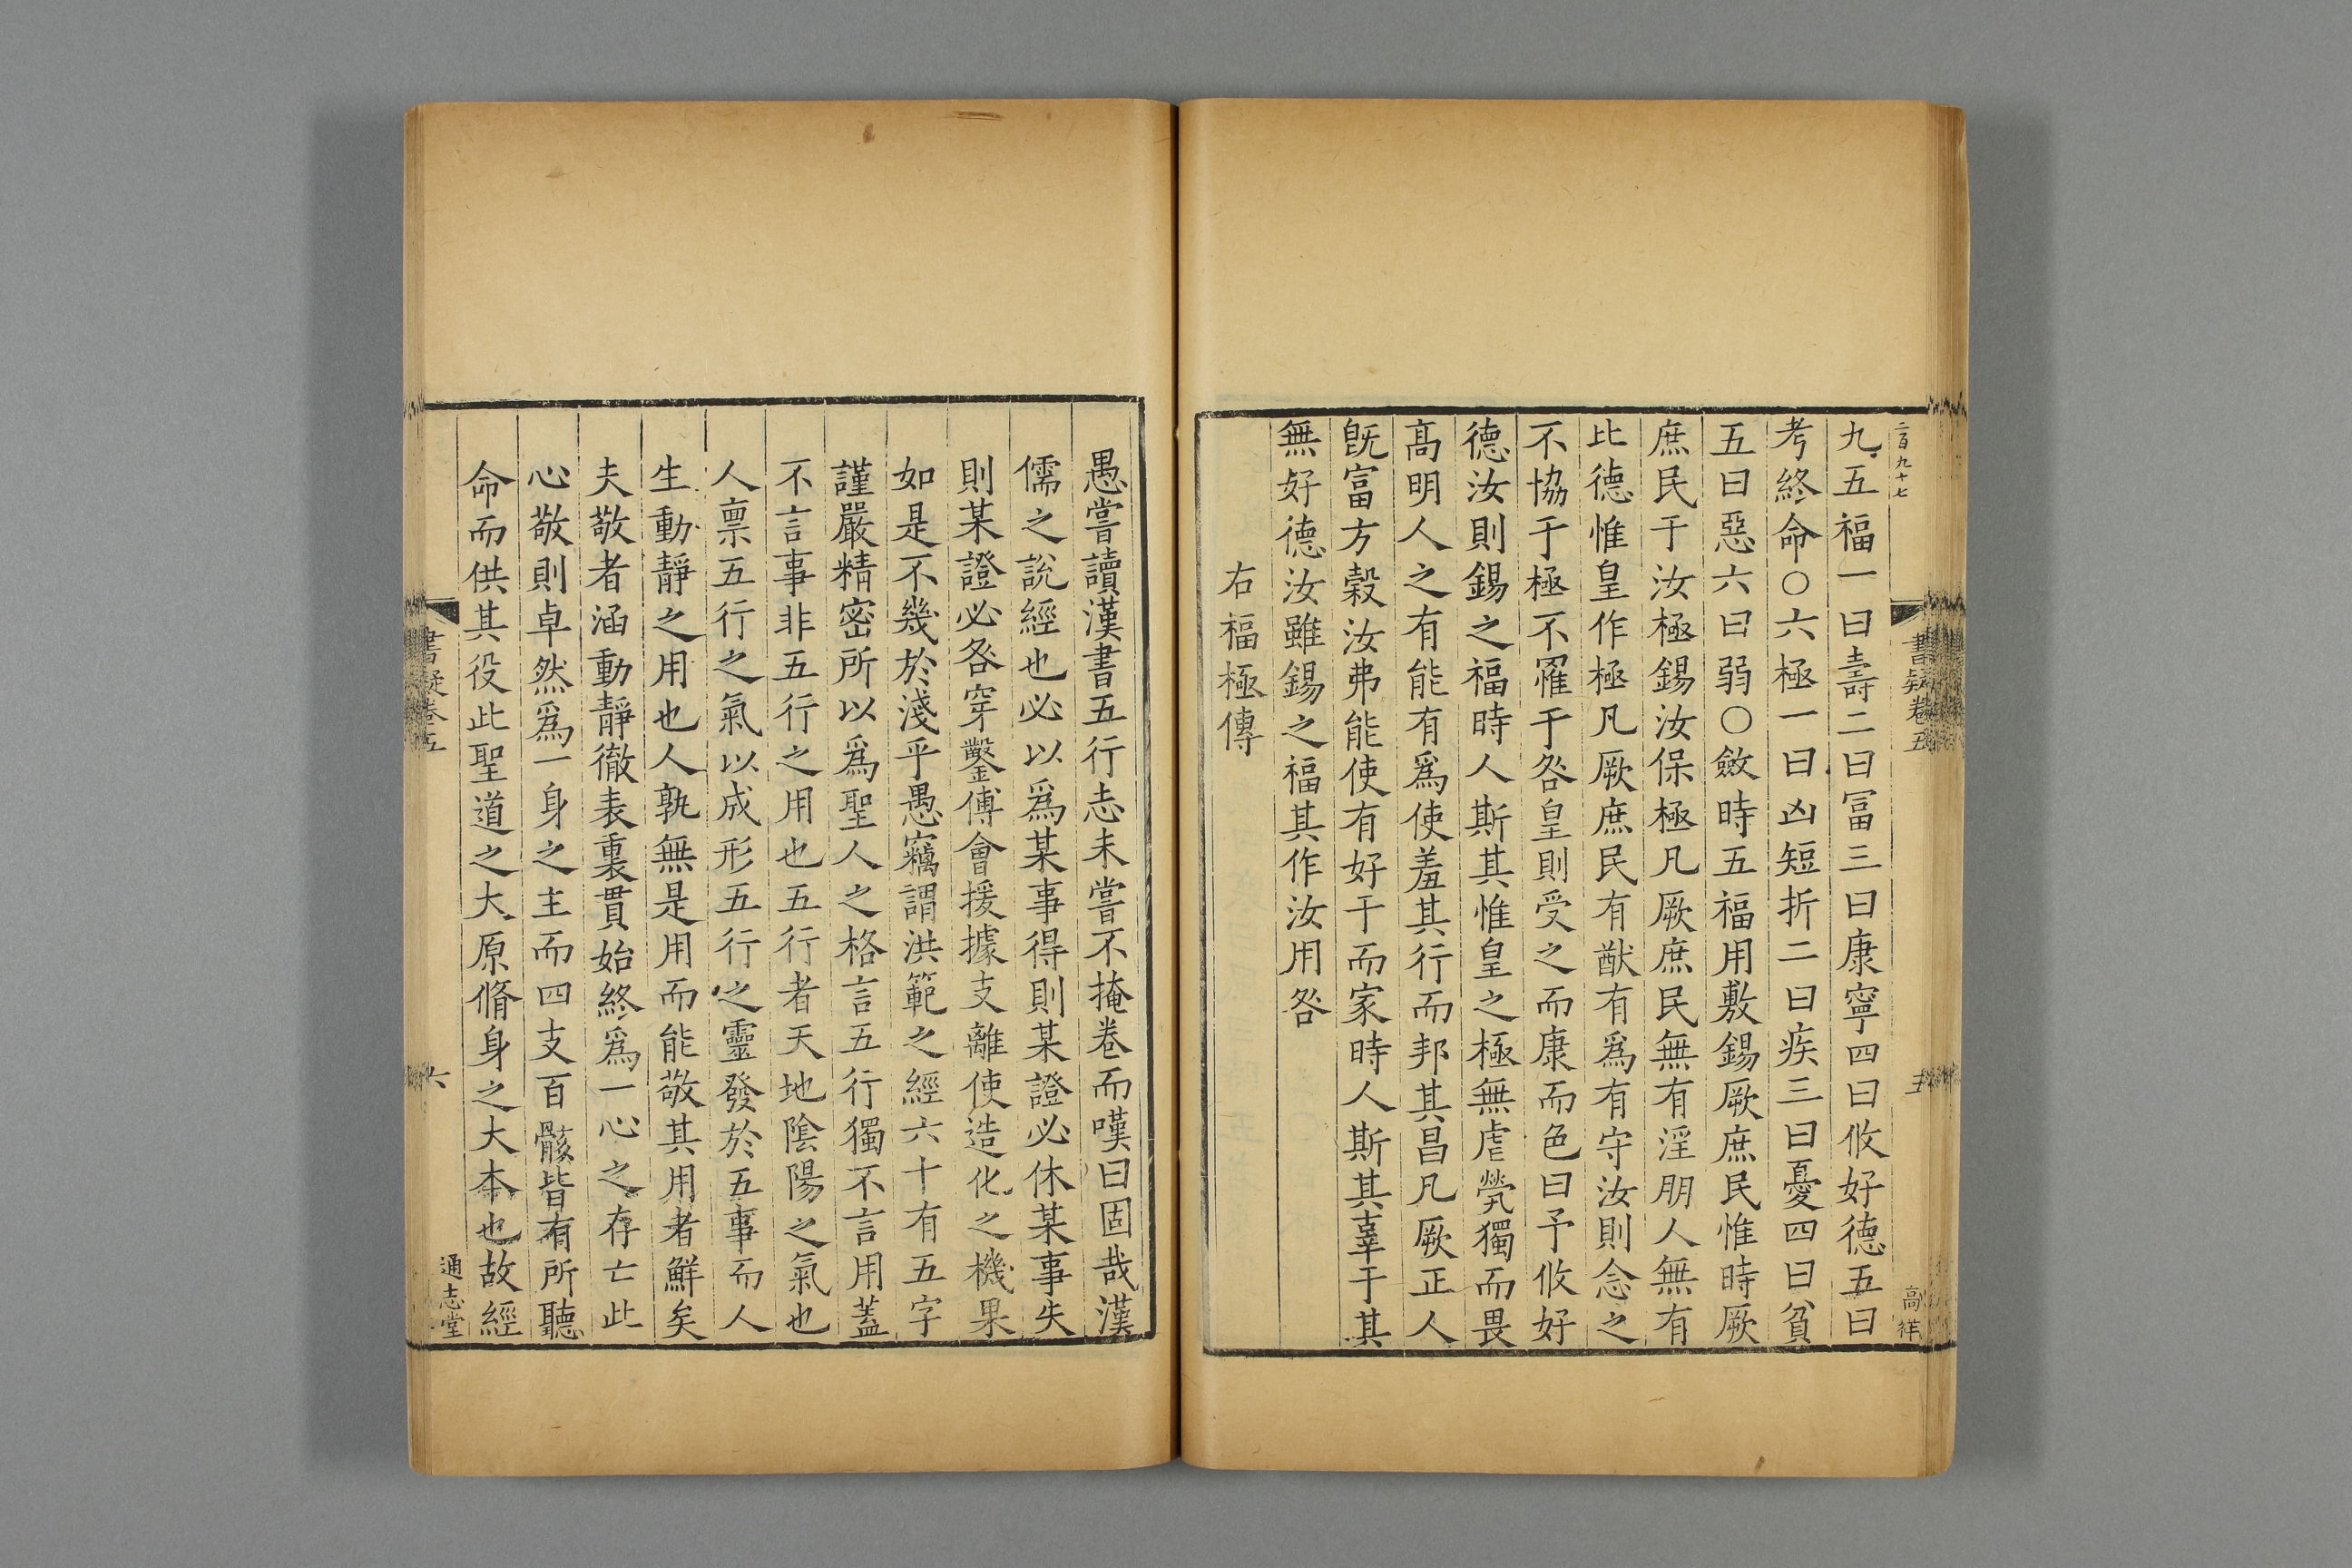 二百九十七
書疑卷五
五
高祥
九五福一曰壽二曰冨三曰康寧四曰攸好德五曰
考終命○六極一曰凶短折二曰疾三曰憂四曰貧
五曰惡六曰弱○斂時五福用敷錫厥庶民惟時厥
庶民于汝極錫汝保極凡厥庶民無有淫朋人無有
比德惟皇作極凡厥庶民有猷有爲有守汝則念之
不協于極不罹于咎皇則受之而康而色曰予攸好
德汝則錫之福時人斯其惟皇之極無虐煢獨而畏
高明人之有能有爲使羞其行而邦其昌凡厥正人
旣富方穀汝弗能使有好于而家時人斯其辜于其
無好德汝雖錫之福其作汝用咎
右福極傳
愚嘗讀漢書五行志未嘗不掩卷而嘆曰固哉漢
儒之說經也必以爲某事得則某證必休某事失
則某證必咎穿鑿傅會援據支離使造化之機果
如是不幾於淺乎愚竊謂洪範之經六十有五字
謹嚴精密所以爲聖人之格言五行獨不言用蓋
不言事非五行之用也五行者天地隂陽之氣也
人禀五行之氣以成形五行之靈發於五事而人
生動靜之用也人孰無是用而能敬其用者鮮矣
夫敬者涵動靜徹表裏貫始終爲一心之存亡此
心敬則卓然爲一身之主而四支百骸皆有所聽
命而供其役此聖道之大原脩身之大本也故經
書疑卷五
六
通志堂